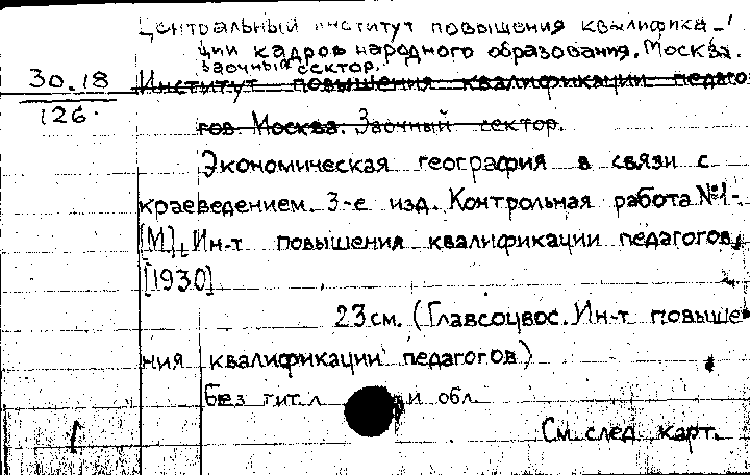 Центральный институт повышения квалифика-
ции кадров народного образования. Москва.
Заочный сектор.
30.18
Институт повышения квалификации педаго-
126.
гов. Москва. Заочный сектор.
Экономическая география в связи с
краеведением. 3-е изд. Контрольная работа №1-
[М], Ин-т повышения квалификации педагогов,
[1930]
23 см. (Главсоцвос. Ин-т повыше-
ния квалификации педагогов)
Без тит. л и обл.
См. след. карт.